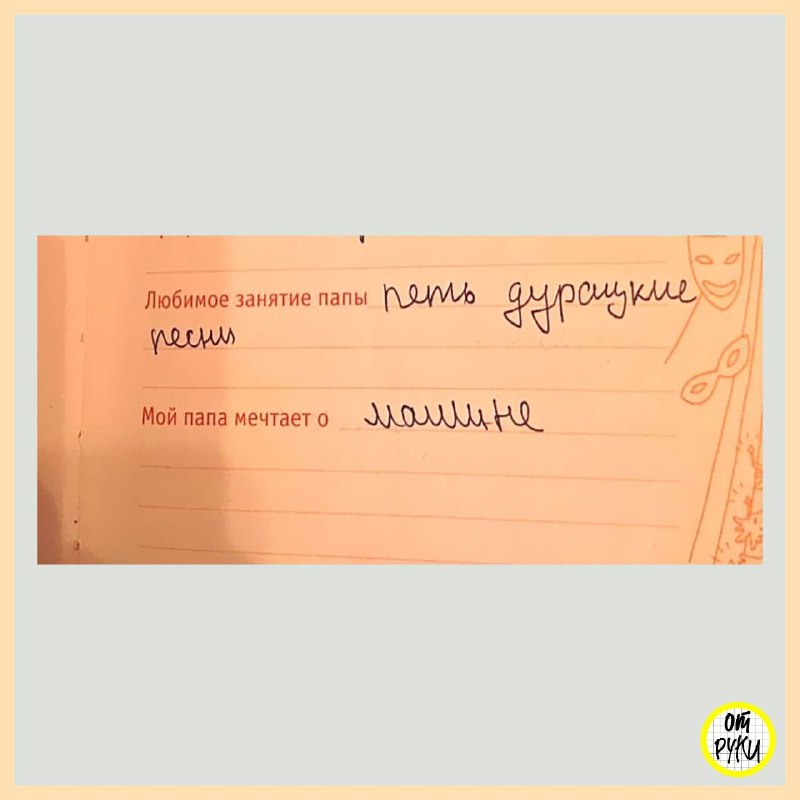 Любимое занятие папы петь дурацкие
песни
Мой папа мечтает о машине
от
руки